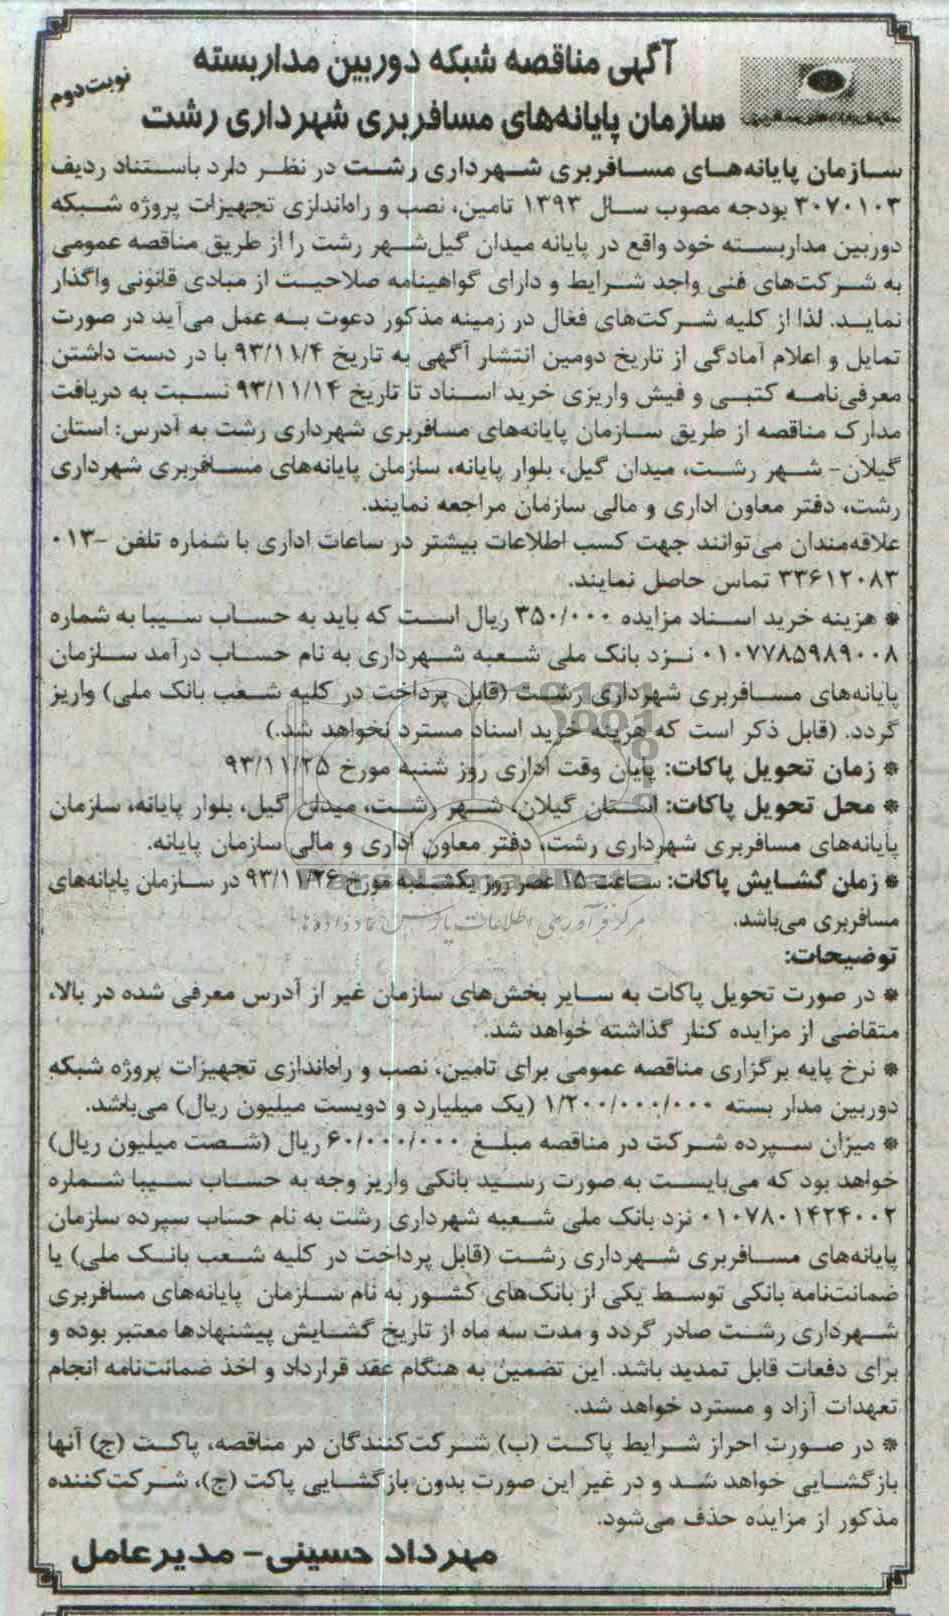 آگهی مناقصه شبکه دوربین مداربسته
سازمان پایانه‌های مسافربری شهرداری رشت
نوبت دوم
سازمان پایانه‌های مسافربری شهرداری رشت در نظر دارد باستناد ردیف
۳۰۷۰۱۰۳ بودجه مصوب سال ۱۳۹۳ تامین، نصب و راه‌اندازی تجهیزات پروژه شبکه
دوربین مداربسته خود واقع در پایانه میدان گیل‌شهر رشت را از طریق مناقصه عمومی
به شرکت‌های فنی واجد شرایط و دارای گواهینامه صلاحیت از مبادی قانونی واگذار
نماید. لذا از کلیه شرکت‌های فعال در زمینه مذکور دعوت به عمل می‌آید در صورت
تمایل و اعلام آمادگی از تاریخ دومین انتشار آگهی به تاریخ ۹۳/۱۱/۴ با در دست داشتن
معرفی‌نامه کتبی و فیش واریزی خرید اسناد تا تاریخ ۹۳/۱۱/۱۴ نسبت به دریافت
مدارک مناقصه از طریق سازمان پایانه‌های مسافربری شهرداری رشت به آدرس: استان
گیلان- شهر رشت، میدان گیل، بلوار پایانه، سازمان پایانه‌های مسافربری شهرداری
رشت، دفتر معاون اداری و مالی سازمان مراجعه نمایند.
علاقه‌مندان می‌توانند جهت کسب اطلاعات بیشتر در ساعات اداری با شماره تلفن ۰۱۳-
۳۳۶۱۲۰۸۳ تماس حاصل نمایند.
* هزینه خرید اسناد مزایده ۳۵۰/۰۰۰ ریال است که باید به حساب سیبا به شماره
۰۱۰۷۷۸۵۹۸۹۰۰۸ نزد بانک ملی شعبه شهرداری به نام حساب درآمد سازمان
پایانه‌های مسافربری شهرداری رشت (قابل پرداخت در کلیه شعب بانک ملی) واریز
گردد. (قابل ذکر است که هزینه خرید اسناد مسترد نخواهد شد.)
* زمان تحویل پاکات: پایان وقت اداری روز شنبه مورخ ۹۳/۱۱/۲۵
* محل تحویل پاکات: استان گیلان، شهر رشت، میدان گیل، بلوار پایانه، سازمان
پایانه‌های مسافربری شهرداری رشت، دفتر معاون اداری و مالی سازمان پایانه.
* زمان گشایش پاکات: ساعت ۱۵ عصر روز یکشنبه مورخ ۹۳/۱۱/۲۶ در سازمان پایانه‌های
مسافربری می‌باشد.
ParsNamadData
مرکز فرآوری اطلاعات پارس نماد داده‌ها
توضیحات:
* در صورت تحویل پاکات به سایر بخش‌های سازمان غیر از آدرس معرفی شده در بالا،
متقاضی از مزایده کنار گذاشته خواهد شد.
* نرخ پایه برگزاری مناقصه عمومی برای تامین، نصب و راه‌اندازی تجهیزات پروژه شبکه
دوربین مدار بسته ۱/۲۰۰/۰۰۰/۰۰۰ (یک میلیارد و دویست میلیون ریال) می‌باشد.
* میزان سپرده شرکت در مناقصه مبلغ ۶۰/۰۰۰/۰۰۰ ریال (شصت میلیون ریال)
خواهد بود که می‌بایست به صورت رسید بانکی واریز وجه به حساب سیبا شماره
۰۱۰۷۸۰۱۴۲۴۰۰۲ نزد بانک ملی شعبه شهرداری رشت به نام حساب سپرده سازمان
پایانه‌های مسافربری شهرداری رشت (قابل پرداخت در کلیه شعب بانک ملی) یا
ضمانت‌نامه بانکی توسط یکی از بانک‌های کشور به نام سازمان پایانه‌های مسافربری
شهرداری رشت صادر گردد و مدت سه ماه از تاریخ گشایش پیشنهادها معتبر بوده و
برای دفعات قابل تمدید باشد. این تضمین به هنگام عقد قرارداد و اخذ ضمانت‌نامه انجام
تعهدات آزاد و مسترد خواهد شد.
* در صورت احراز شرایط پاکت (ب) شرکت‌کنندگان در مناقصه، پاکت (ج) آنها
بازگشایی خواهد شد و در غیر این صورت بدون بازگشایی پاکت (ج)، شرکت‌کننده
مذکور از مزایده حذف می‌شود.
مهرداد حسینی- مدیرعامل